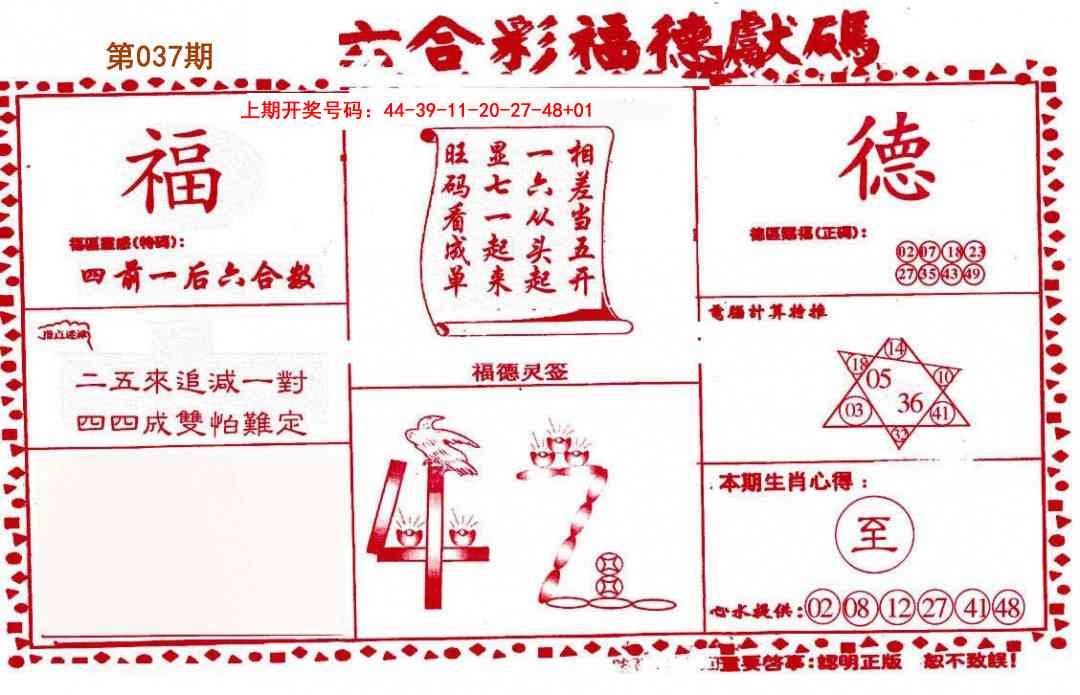 第037期
六合彩福德獻碼
上期开奖号码：44-39-11-20-27-48+01
福
福區靈感(特碼)：
四前一后六合数
二五來追減一對
四四成雙怕難定
相差当五开
一六从头起
显七一起来
旺码看成单
福德灵签
德
德區賜福(正碼)：
02 07 18 23
27 35 43 49
電腦計算特推
14
18 10
05
36
03 41
32
本期生肖心得：
至
心水提供：02 08 12 27 41 48
重要啓事：認明正版 恕不致誤！